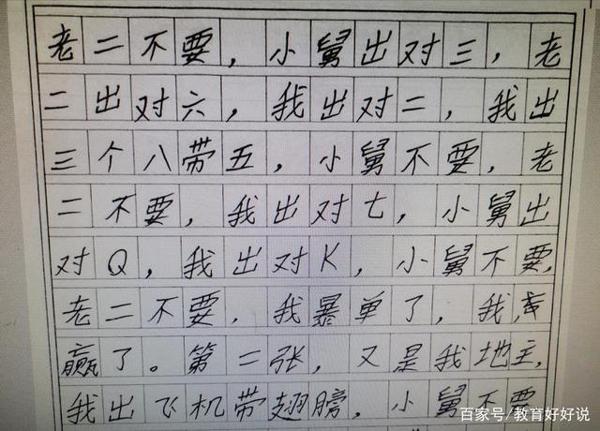 老二不要，小舅出对三，老
二出对六，我出对二，我出
三个八带五，小舅不要，老
二不要，我出对七，小舅出
对Q，我出对K，小舅不要，
老二不要，我暴单了，我
赢了。第二张，又是我地主，
我出飞机带翅膀，小舅不要
百家号/教育好好说